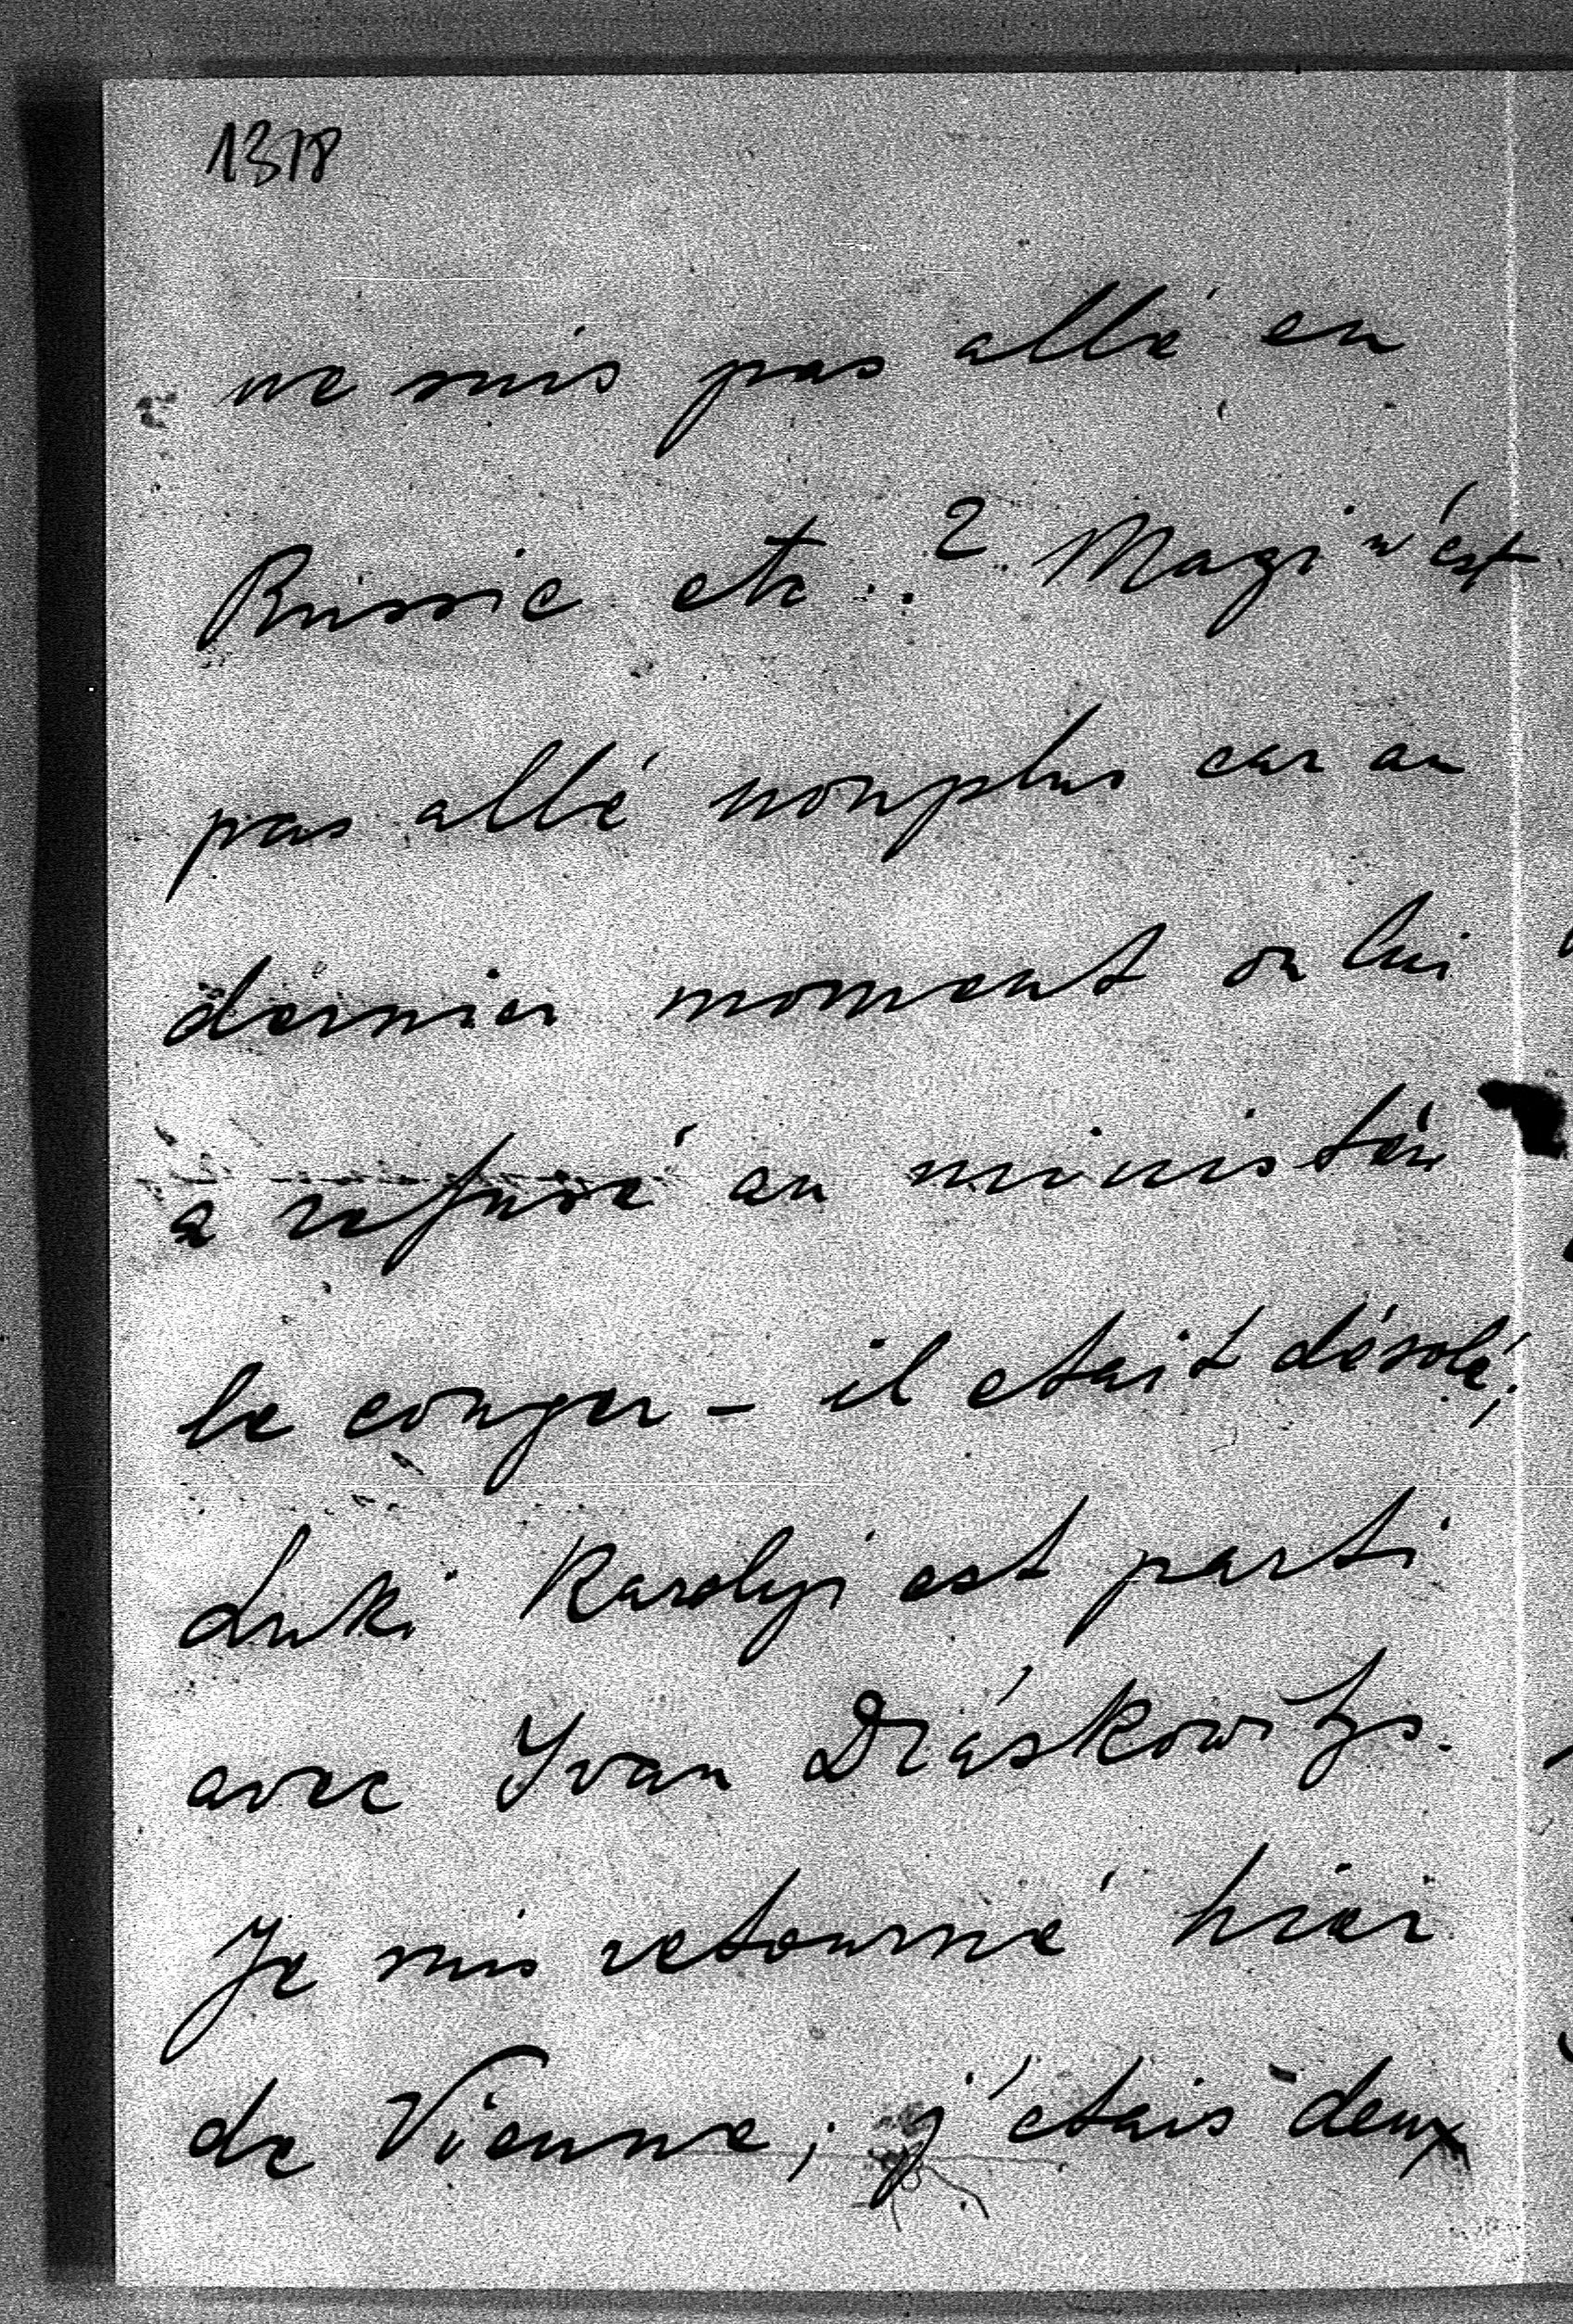 1318
ne suis pas allé en
Russie etc..? Magi n'est
pas allé nonplus car au
dernier moment on lui
a refusé au ministère
le conger – il etait désolé;
Luki Karolyi est parti
avec Yvan Dráskowitjs.
Je suis retourné hier
de Vienne; j'étais deux